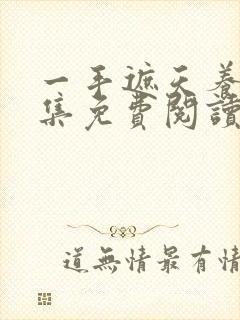 一手遮天養
集免費閱讀
道無情最有情